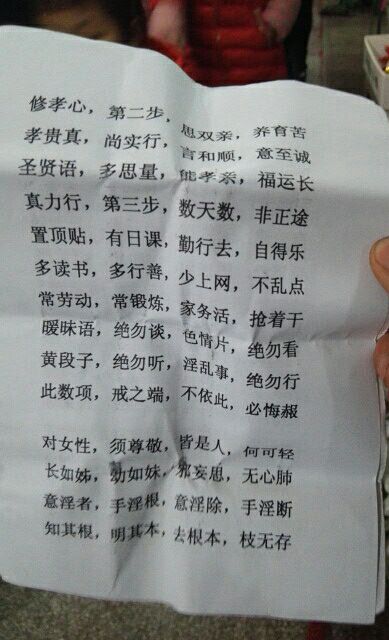 修孝心，第二步，思双亲，养育苦
孝贵真，尚实行，言和顺，意至诚
圣贤语，多思量，能孝亲，福运长
真力行，第三步，数天数，非正途
置顶贴，有日课，勤行去，自得乐
多读书，多行善，少上网，不乱点
常劳动，常锻炼，家务活，抢着干
暧昧语，绝勿谈，色情片，绝勿看
黄段子，绝勿听，淫乱事，绝勿行
此数项，戒之端，不依此，必悔赧
对女性，须尊敬，皆是人，何可轻
长如姊，幼如妹，邪妄思，无心肺
意淫者，手淫根，意淫除，手淫断
知其根，明其本，去根本，枝无存